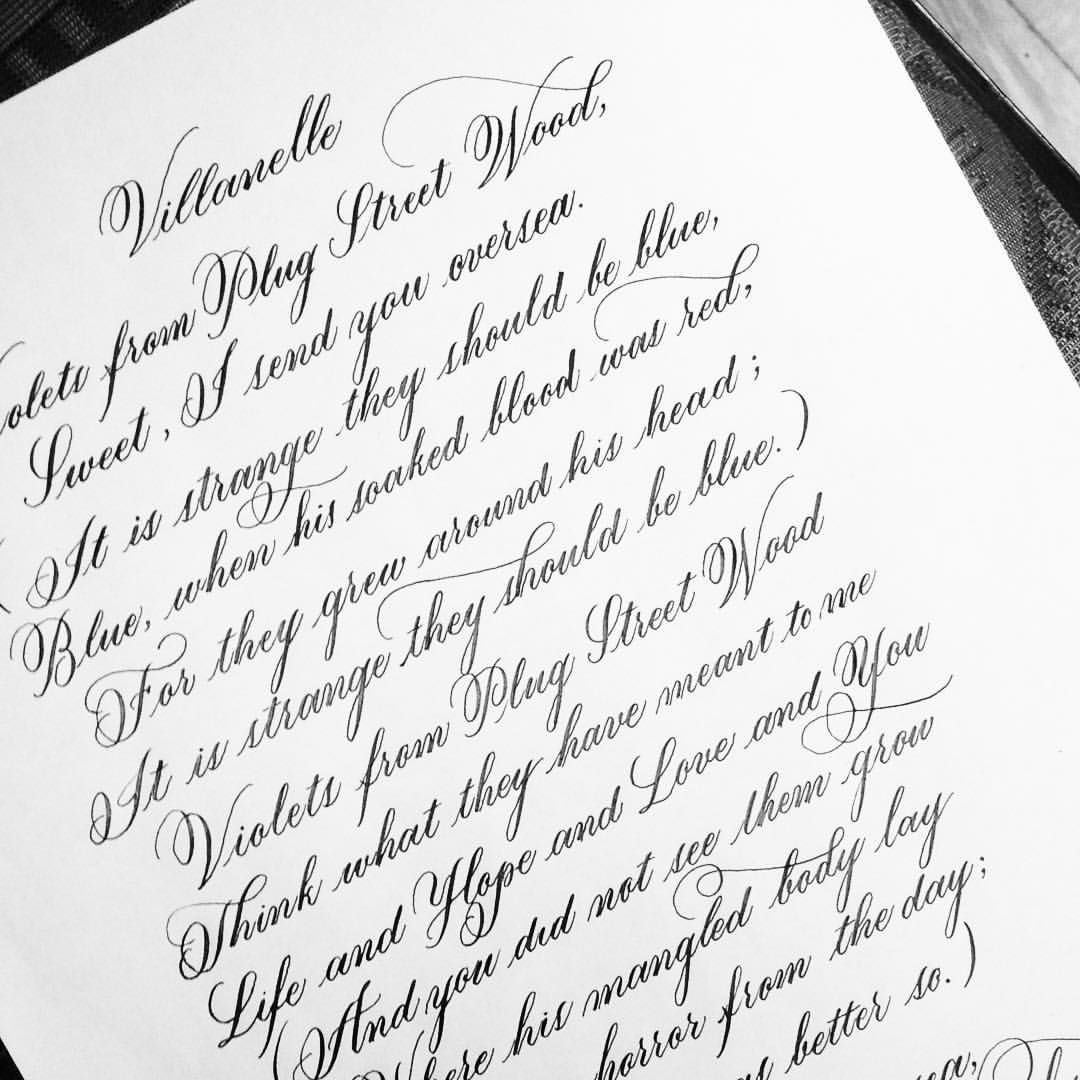 Villanelle
from Plug Street Wood,
Sweet, I send you oversea.
(It is strange they should be blue,
Blue, when his soaked blood was red,
For they grew around his head;
It is strange they should be blue.)
Violets from Plug Street Wood
Think what they have meant to me
Life and Hope and Love and You
(And you did not see them grow
his mangled body lay
horror from the day;
better so.)